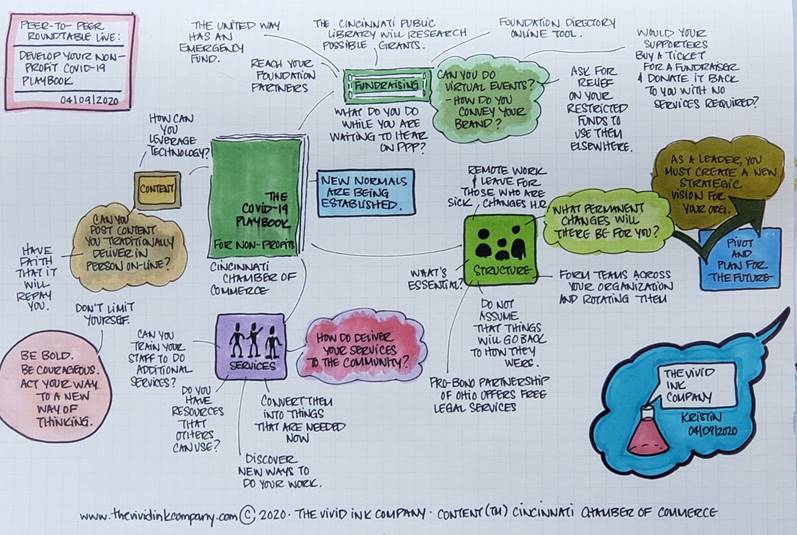 PEER-TO-PEER
ROUNDTABLE LIVE:
DEVELOP YOUR NON-
PROFIT COVID-19
PLAYBOOK
04/09/2020
THE UNITED WAY
HAS AN
EMERGENCY
FUND.
THE CINCINNATI PUBLIC
LIBRARY WILL RESEARCH
POSSIBLE GRANTS.
FOUNDATION DIRECTORY
ONLINE TOOL.
WOULD YOUR
SUPPORTERS
BUY A TICKET
FOR A FUNDRAISER
& DONATE IT BACK
TO YOU WITH NO
SERVICES REQUIRED?
REACH YOUR
FOUNDATION
PARTNERS
FUNDRAISING
CAN YOU DO
VIRTUAL EVENTS?
- HOW DO YOU
CONVEY YOUR
BRAND?
ASK FOR
RELIEF
ON YOUR
RESTRICTED
FUNDS TO
USE THEM
ELSEWHERE.
WHAT DO YOU DO
WHILE YOU ARE
WAITING TO HEAR
ON PPP?
HOW CAN
YOU
LEVERAGE
TECHNOLOGY?
CONTENT
CAN YOU
POST CONTENT
YOU TRADITIONALLY
DELIVER IN
PERSON ON-LINE?
HAVE
FAITH THAT
IT WILL
REPAY
YOU.
THE
COVID-19
PLAYBOOK
FOR NON-PROFITS
CINCINNATI
CHAMBER OF
COMMERCE
NEW NORMALS
ARE BEING
ESTABLISHED.
REMOTE WORK
& LEAVE FOR
THOSE WHO ARE
SICK, CHANGES H.R.
WHAT PERMANENT
CHANGES WILL
THERE BE FOR YOU?
AS A LEADER, YOU
MUST CREATE A NEW
STRATEGIC
VISION FOR
YOUR ORG.
PIVOT
AND
PLAN FOR
THE FUTURE
STRUCTURE
WHAT'S
ESSENTIAL?
FORM TEAMS ACROSS
YOUR ORGANIZATION
AND ROTATING THEM
DO NOT
ASSUME
THAT THINGS
WILL GO BACK
TO HOW THEY
WERE.
PRO-BONO PARTNERSHIP
OF OHIO OFFERS FREE
LEGAL SERVICES
DON'T LIMIT
YOURSELF.
BE BOLD.
BE COURAGEOUS.
ACT YOUR WAY
TO A NEW
WAY OF
THINKING.
CAN YOU
TRAIN YOUR
STAFF TO DO
ADDITIONAL
SERVICES?
SERVICES
HOW DO DELIVER
YOUR SERVICES
TO THE COMMUNITY?
DO YOU
HAVE
RESOURCES
THAT
OTHERS
CAN USE?
CONVERT THEM
INTO THINGS
THAT ARE NEEDED
NOW
DISCOVER
NEW WAYS TO
DO YOUR WORK.
THE VIVID
INK
COMPANY
KRISTIN
04/09/2020
www.thevividinkcompany.com © 2020 · THE VIVID INK COMPANY · CONTENT (TM) CINCINNATI CHAMBER OF COMMERCE